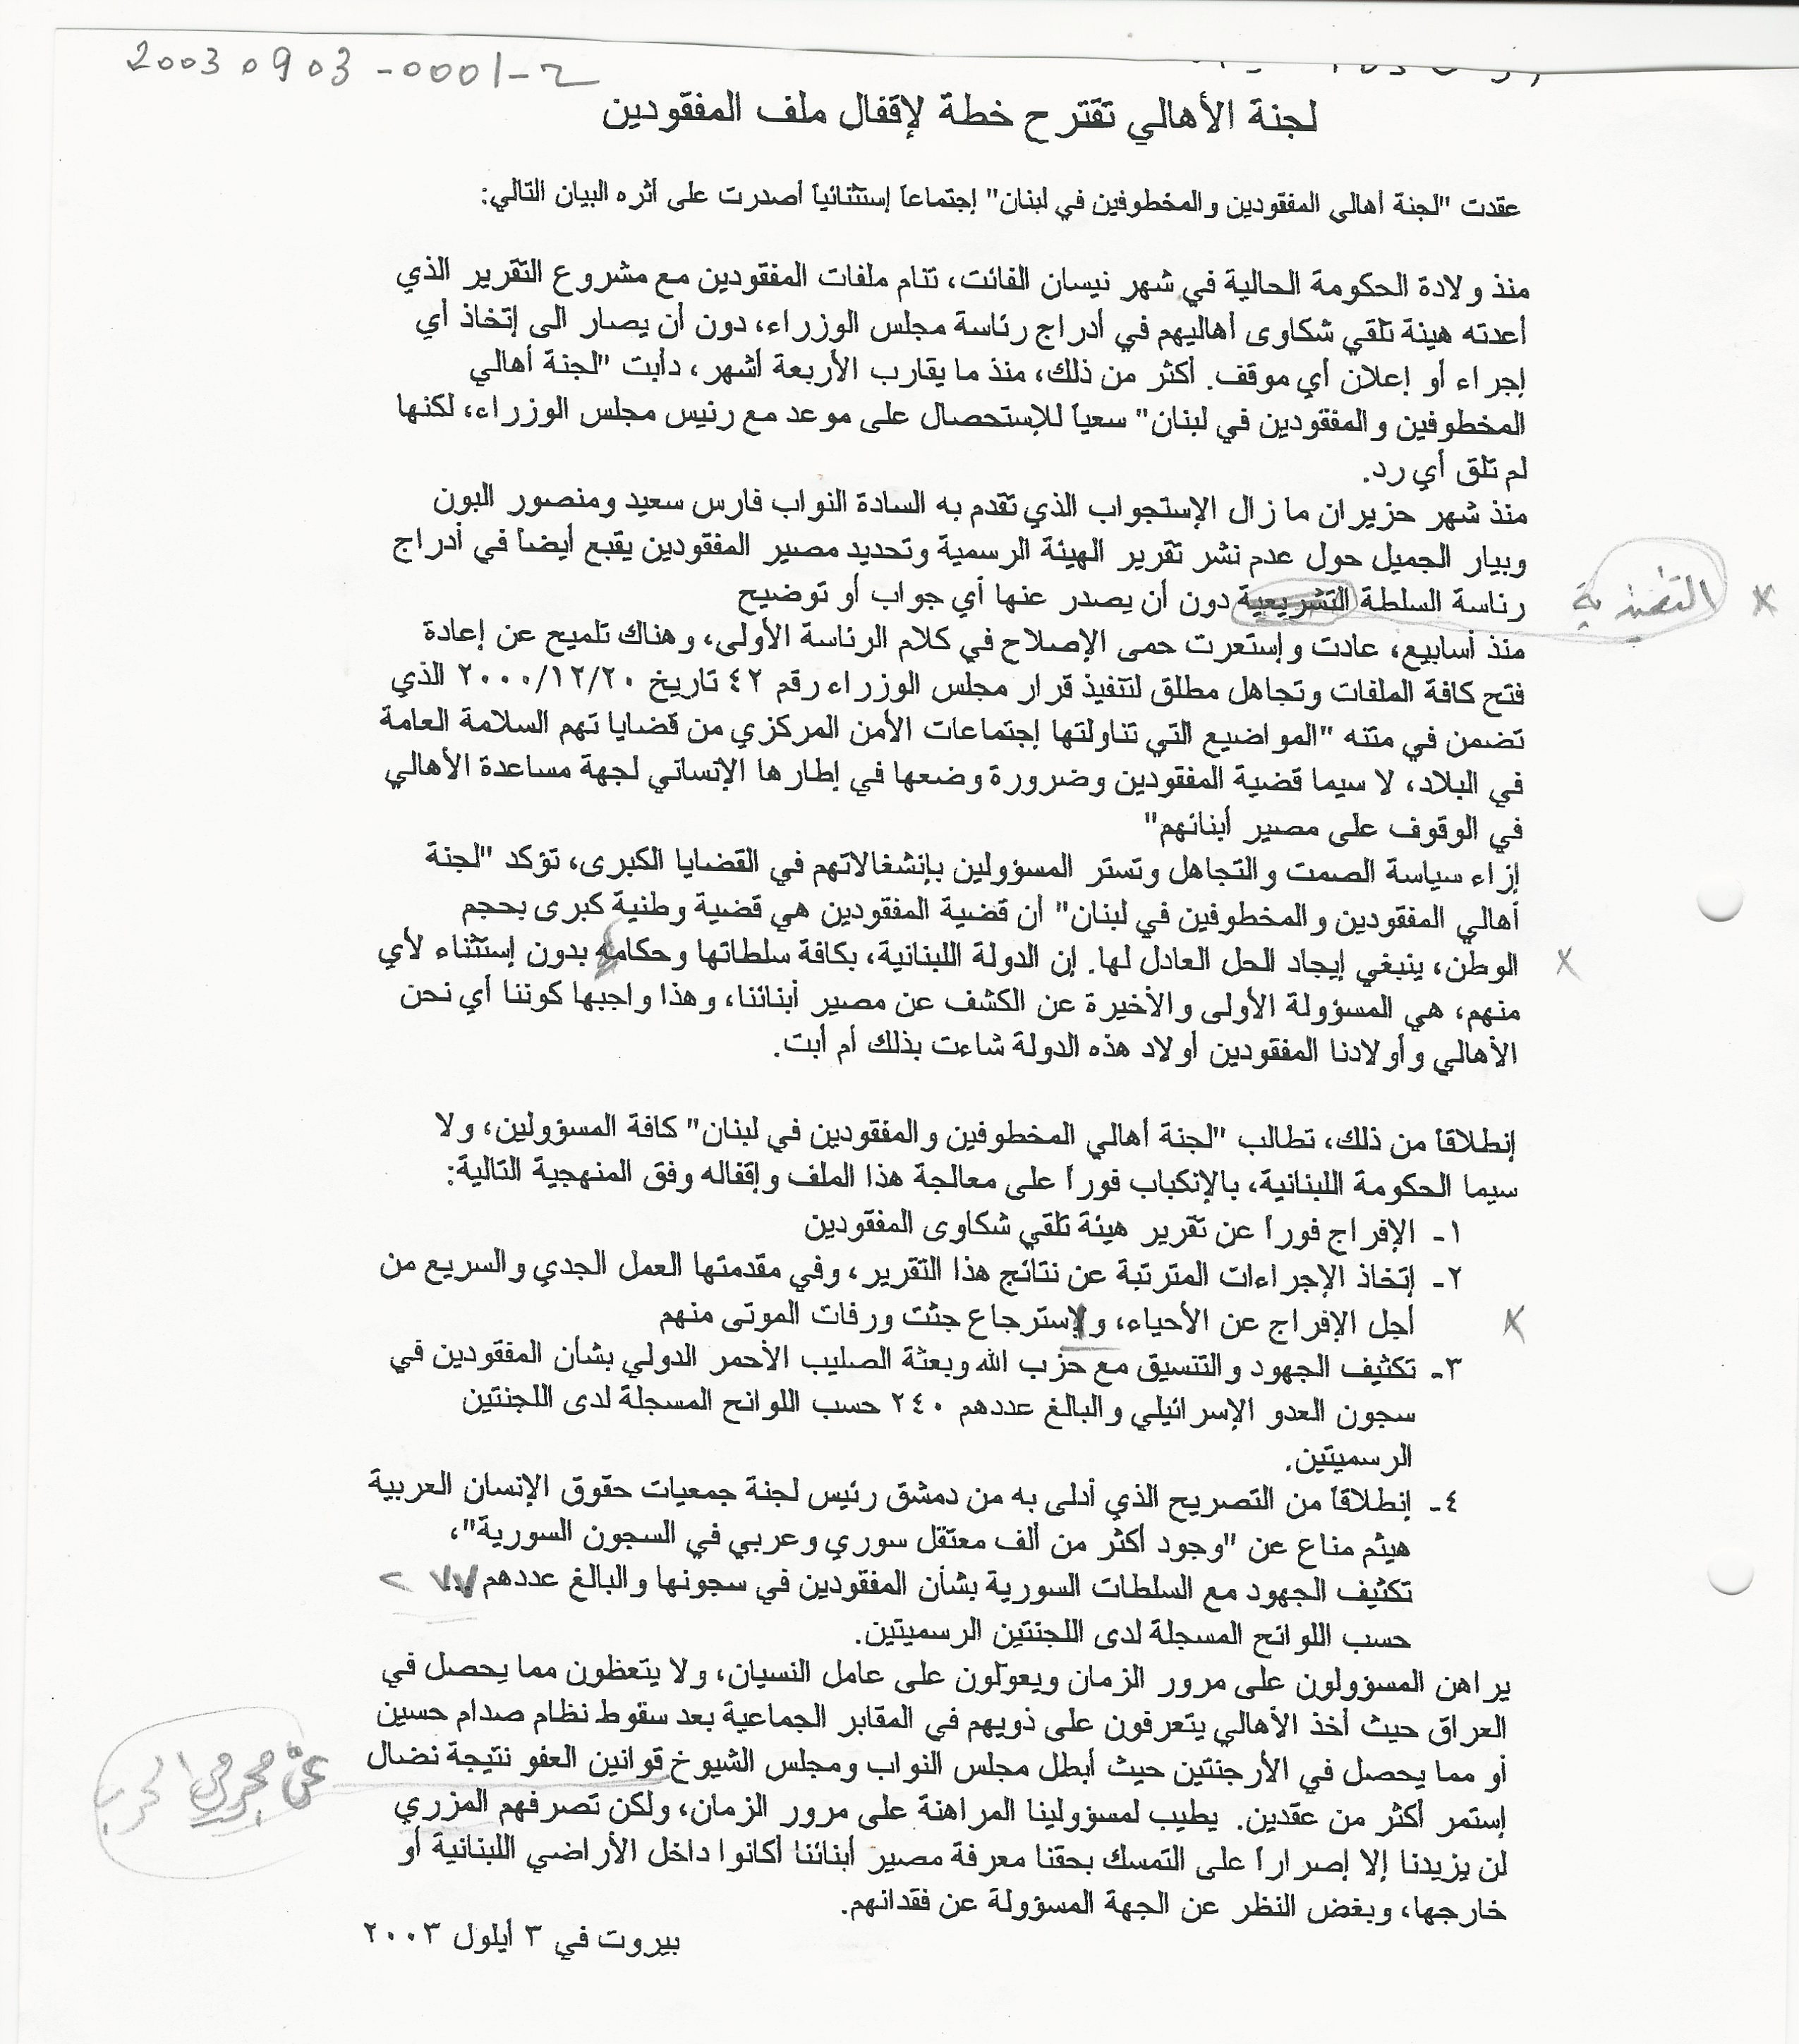 20030903-0001-2
لجنة الأهالي تقترح خطة لإقفال ملف المفقودين
عقدت "لجنة أهالي المفقودين والمخطوفين في لبنان" إجتماعاً إستثنائياً أصدرت على أثره البيان التالي:
منذ ولادة الحكومة الحالية في شهر نيسان الفائت، تنام ملفات المفقودين مع مشروع التقرير الذي
أعدته هيئة تلقي شكاوى أهاليهم في أدراج رئاسة مجلس الوزراء، دون أن يصار الى إتخاذ أي
إجراء أو إعلان أي موقف. أكثر من ذلك، منذ ما يقارب الأربعة أشهر، دأبت "لجنة أهالي
المخطوفين والمفقودين في لبنان" سعياً للإستحصال على موعد مع رئيس مجلس الوزراء، لكنها
لم تلق أي رد.
منذ شهر حزيران ما زال الإستجواب الذي تقدم به السادة النواب فارس سعيد ومنصور البون
وبيار الجميل حول عدم نشر تقرير الهيئة الرسمية وتحديد مصير المفقودين يقبع أيضاً في أدراج
رئاسة السلطة التشريعية دون أن يصدر عنها أي جواب أو توضيح
x التنفيذية
منذ أسابيع، عادت وإستعرت حمى الإصلاح في كلام الرئاسة الأولى، وهناك تلميح عن إعادة
فتح كافة الملفات وتجاهل مطلق لتنفيذ قرار مجلس الوزراء رقم ٤٢ تاريخ ٢٠٠٠/١٢/٢٠ الذي
تضمن في متنه "المواضيع التي تناولتها إجتماعات الأمن المركزي من قضايا تهم السلامة العامة
في البلاد، لا سيما قضية المفقودين وضرورة وضعها في إطارها الإنساني لجهة مساعدة الأهالي
في الوقوف على مصير أبنائهم"
إزاء سياسة الصمت والتجاهل وتستر المسؤولين بإنشغالاتهم في القضايا الكبرى، تؤكد "لجنة
أهالي المفقودين والمخطوفين في لبنان" أن قضية المفقودين هي قضية وطنية كبرى بحجم
x الوطن، ينبغي إيجاد الحل العادل لها. إن الدولة اللبنانية، بكافة سلطاتها وحكامها بدون إستثناء لأي
منهم، هي المسؤولة الأولى والأخيرة عن الكشف عن مصير أبنائنا، وهذا واجبها كوننا أي نحن
الأهالي وأولادنا المفقودين أولاد هذه الدولة شاءت بذلك أم أبت.
إنطلاقاً من ذلك، تطالب "لجنة أهالي المخطوفين والمفقودين في لبنان" كافة المسؤولين، ولا
سيما الحكومة اللبنانية، بالإنكباب فوراً على معالجة هذا الملف وإقفاله وفق المنهجية التالية:
١- الإفراج فوراً عن تقرير هيئة تلقي شكاوى المفقودين
٢- إتخاذ الإجراءات المترتبة عن نتائج هذا التقرير، وفي مقدمتها العمل الجدي والسريع من
x أجل الإفراج عن الأحياء، ولإسترجاع جثت ورفات الموتى منهم
٣- تكثيف الجهود والتنسيق مع حزب الله وبعثة الصليب الأحمر الدولي بشأن المفقودين في
سجون العدو الإسرائيلي والبالغ عددهم ٢٤٠ حسب اللوائح المسجلة لدى اللجنتين
الرسميتين.
٤- إنطلاقاً من التصريح الذي أدلى به من دمشق رئيس لجنة جمعيات حقوق الإنسان العربية
هيثم مناع عن "وجود أكثر من ألف معتقل سوري وعربي في السجون السورية"،
تكثيف الجهود مع السلطات السورية بشأن المفقودين في سجونها والبالغ عددهم
حسب اللوائح المسجلة لدى اللجنتين الرسميتين.
يراهن المسؤولون على مرور الزمان ويعوّلون على عامل النسيان، ولا يتعظون مما يحصل في
العراق حيث أخذ الأهالي يتعرفون على ذويهم في المقابر الجماعية بعد سقوط نظام صدام حسين
أو مما يحصل في الأرجنتين حيث أبطل مجلس النواب ومجلس الشيوخ قوانين العفو نتيجة نضال
عن مجرمي الحرب
إستمر أكثر من عقدين. يطيب لمسؤولينا المراهنة على مرور الزمان، ولكن تصرفهم المزري
لن يزيدنا إلا إصراراً على التمسك بحقنا معرفة مصير أبنائنا أكانوا داخل الأراضي اللبنانية أو
خارجها، وبغض النظر عن الجهة المسؤولة عن فقدانهم.
بيروت في ٣ أيلول ٢٠٠٣